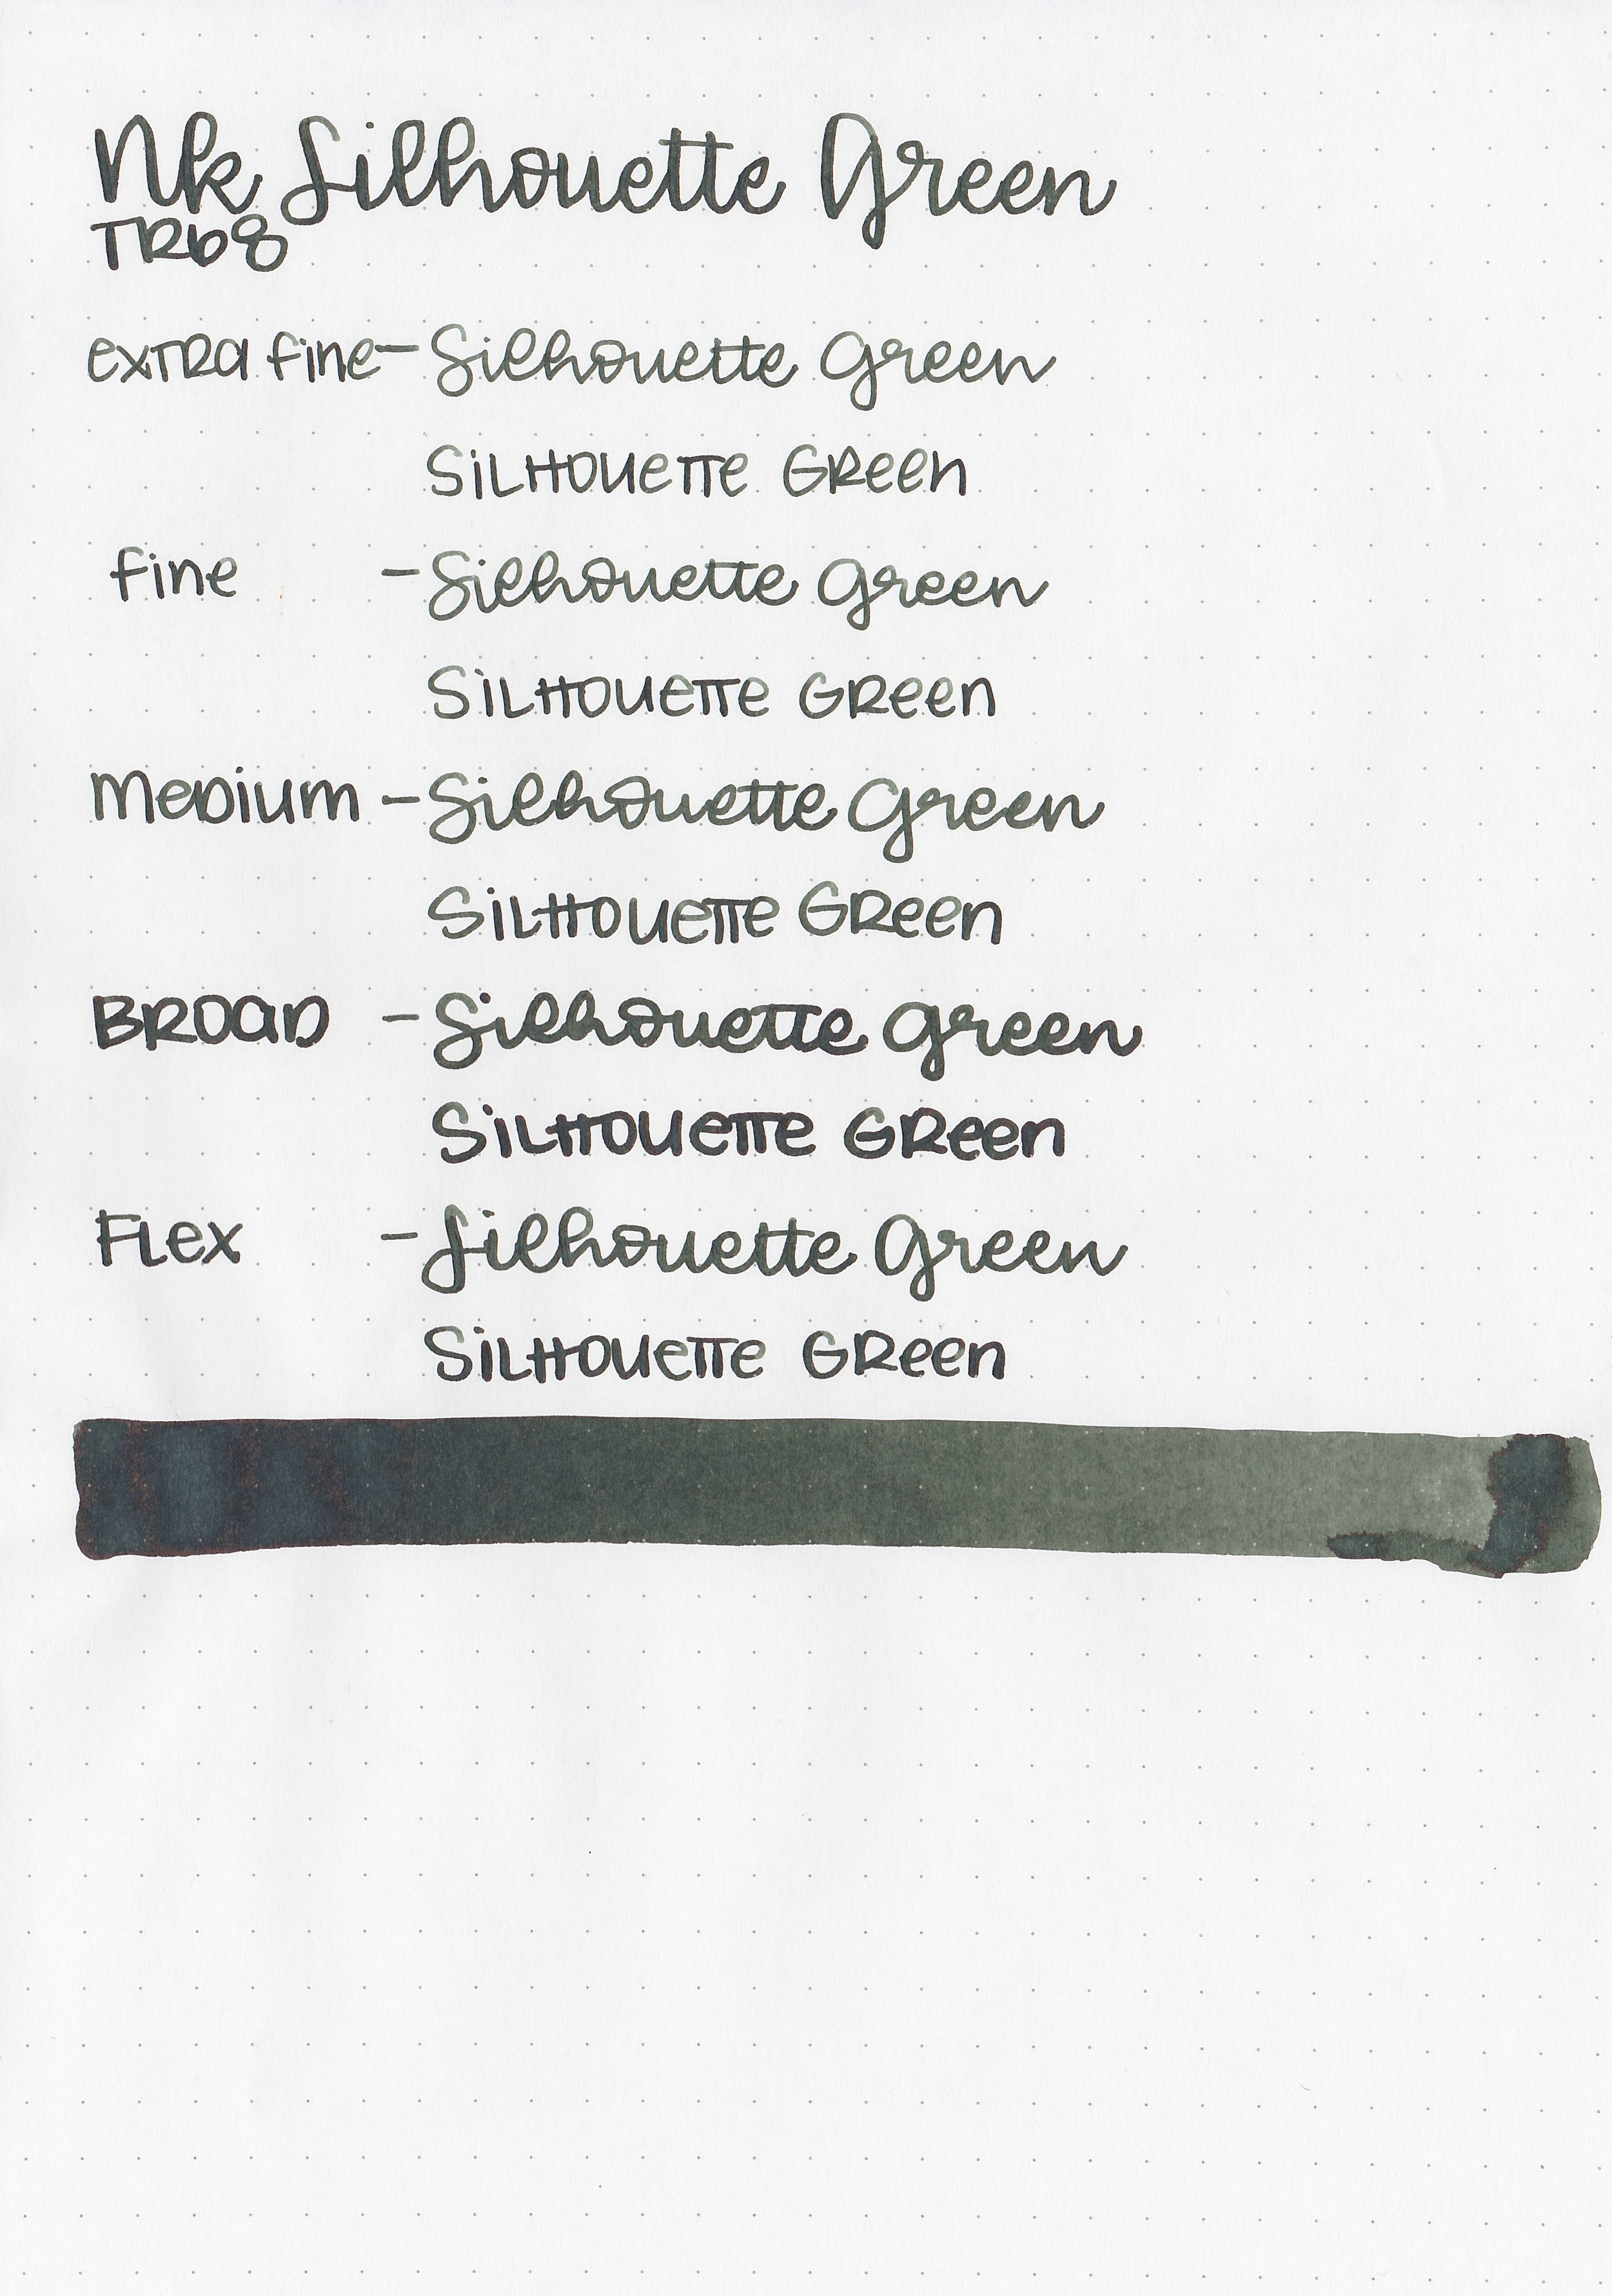 Nk Silhouette Green
TR68
extra fine - Silhouette Green
SiLHOUeTTe GReen
fine - Silhouette Green
SiLHOUeTTe GReen
MeDium - Silhouette Green
SiLHOUeTTe GReen
BROaD - Silhouette Green
SiLHOUeTTe GReen
FLex - Silhouette Green
SiLHOUeTTe GReen